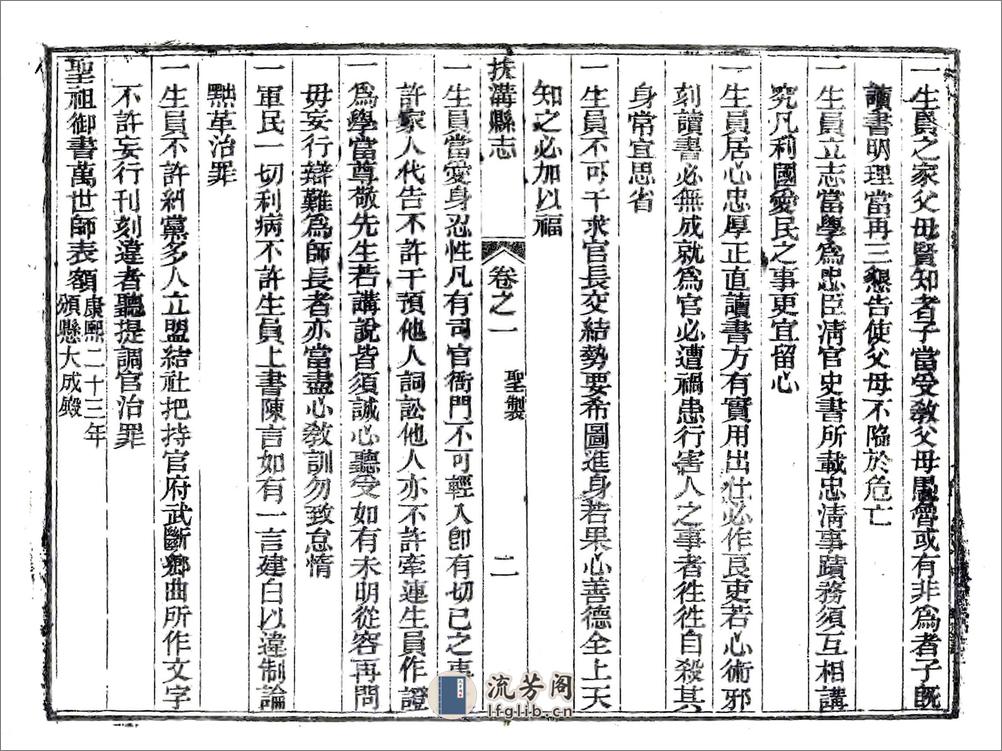 一生員之家父母賢知者子當受敎父母愚魯或有非爲者子旣
讀書明理當再三懇告使父母不陷於危亡
一生員立志當學爲忠臣淸官史書所載忠淸事蹟務須互相講
究凡利國愛民之事更宜留心
一生員居心忠厚正直讀書方有實用出仕必作良吏若心術邪
刻讀書必無成就爲官必遭禍患行害人之事者徃徃自殺其
身常宜思省
一生員不可干求官長交結勢要希圖進身若果心善德全上天
知之必加以福
扶溝縣志 卷之一 聖製 二
一生員當愛身忍性凡有司官衙門不可輕入卽有切已之事
許家人代告不許干預他人詞訟他人亦不許牽連生員作證
一爲學當尊敬先生若講說皆須誠心聽受如有未明從容再問
毋妄行辯難爲師長者亦當盡心敎訓勿致怠惰
一軍民一切利病不許生員上書陳言如有一言建白以違制論
黜革治罪
一生員不許糾黨多人立盟結社把持官府武斷鄉曲所作文字
不許妄行刊刻違者聽提調官治罪
聖祖御書萬世師表額康熙二十三年
頒懸大成殿
流芳閣
lfglib.cn